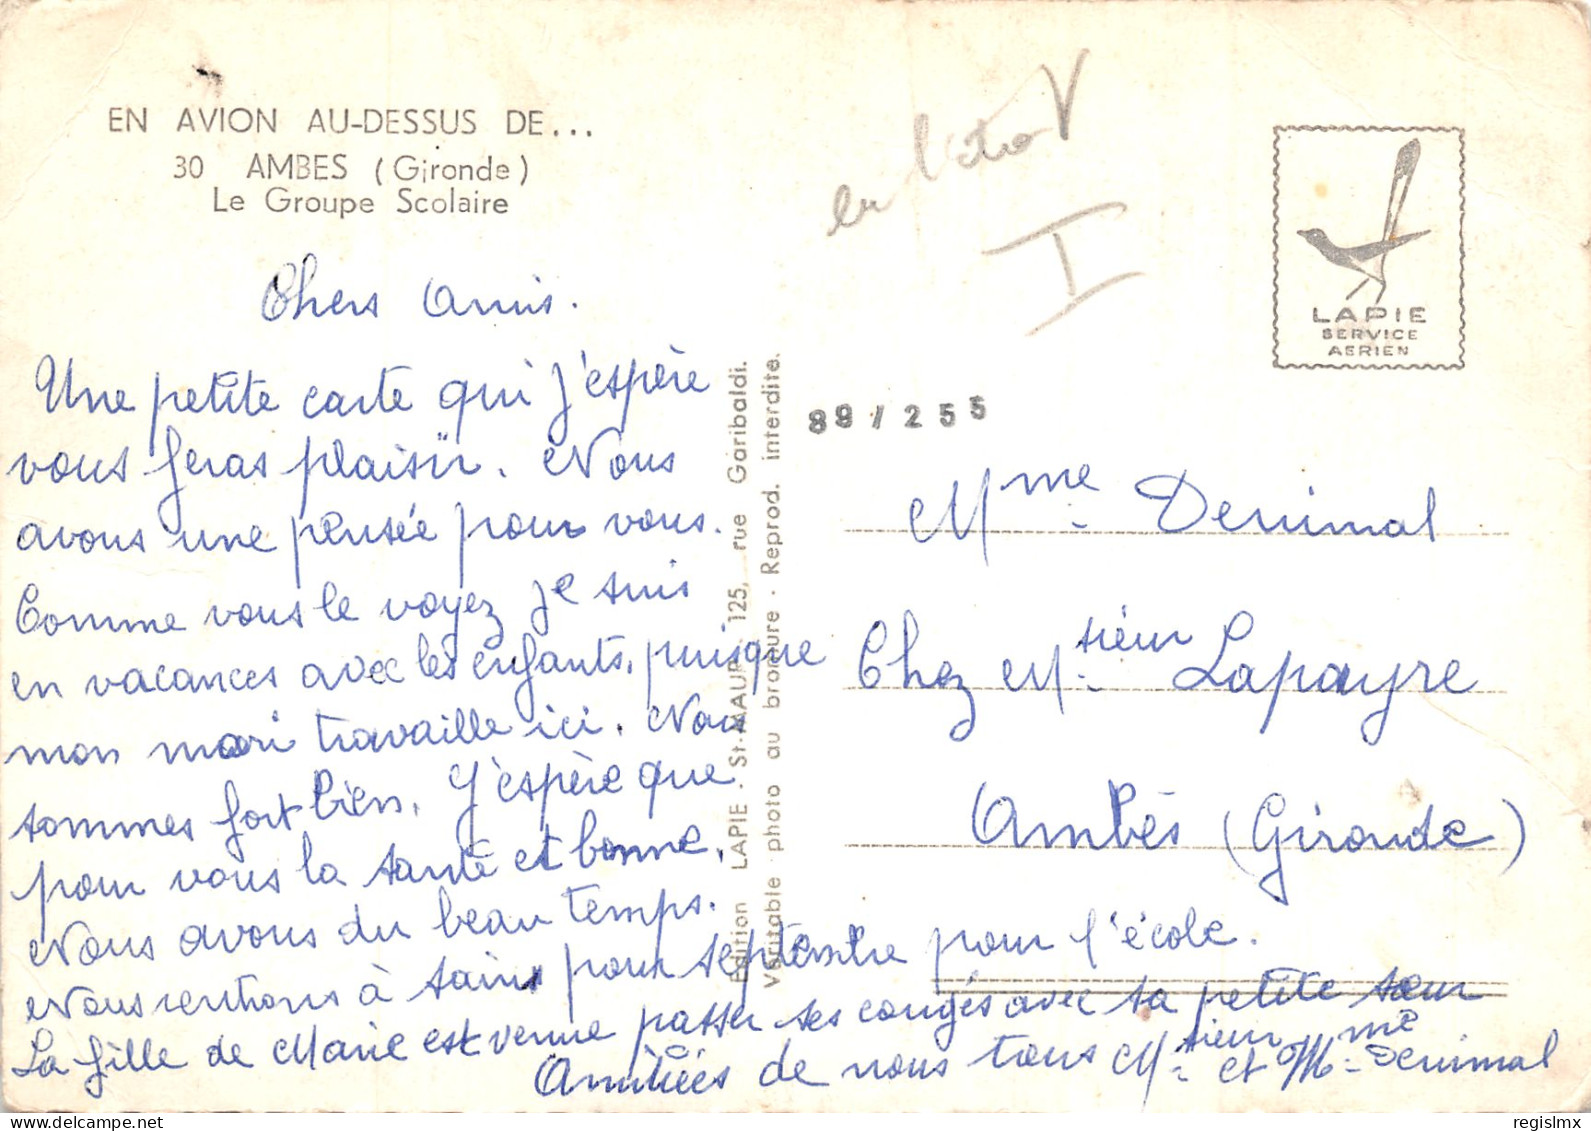 EN AVION AU-DESSUS DE...
30 AMBES (Gironde)
Le Groupe Scolaire
Chers Amis.
Une petite carte qui j'espère
vous feras plaisir. Nous
avons une pensée pour vous.
Comme vous le voyez je suis
en vacances avec les enfants, puisque
mon mari travaille ici. Nous
sommes fort bien. J'espère que
pour vous la santé et bonne,
Nous avons du beau temps.
Nous rentrons à sains pour septembre pour l'école.
La fille de Marie est venue passer ses congés avec sa petite sœur
Amitiées de nous tous M.sieur et Mme Denimal
Edition LAPIE - St-MAUR 125, rue Garibaldi.
Véritable photo au bromure - Reprod. interdite.
en
V
I
LAPIE
SERVICE
AERIEN
89/255
Mme Denimal
Chez M.sieur Lapayre
Ambès (Gironde)
delcampe.net
regislmx